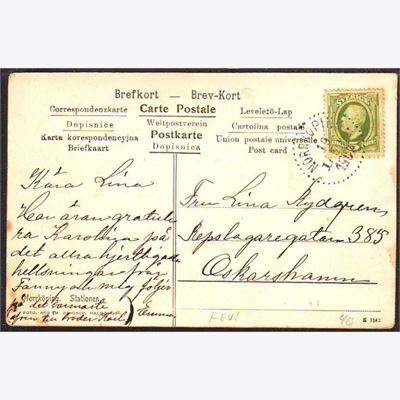 Brefkort — Brev-Kort
Correspondenzkarte Carte Postale Levelező-Lap
Dopisnice Weltpostverein Cartolina postale
Karta korespondencyjna Postkarte Union postale universelle
Briefkaart Dopisnica Post card
SVERIGE
NORRKÖPING
Kära Lina
Har äran gratule
ra Karolina på
det allra hjertligaste
hellsningar från
Fanny och mig följer
Norrköping. Stationen.
på det varmaste
från till broder Karl
Emma
Fru Lina Rydgren
Repslagaregatan 385
Oskarshamn
FEVL
40
K 1162